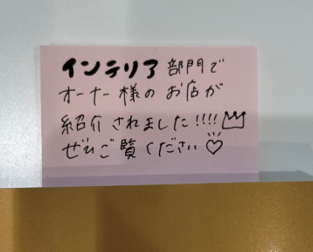 インテリア部門で
オーナー様のお店が
紹介されました!!!!
ぜひご覧ください♡